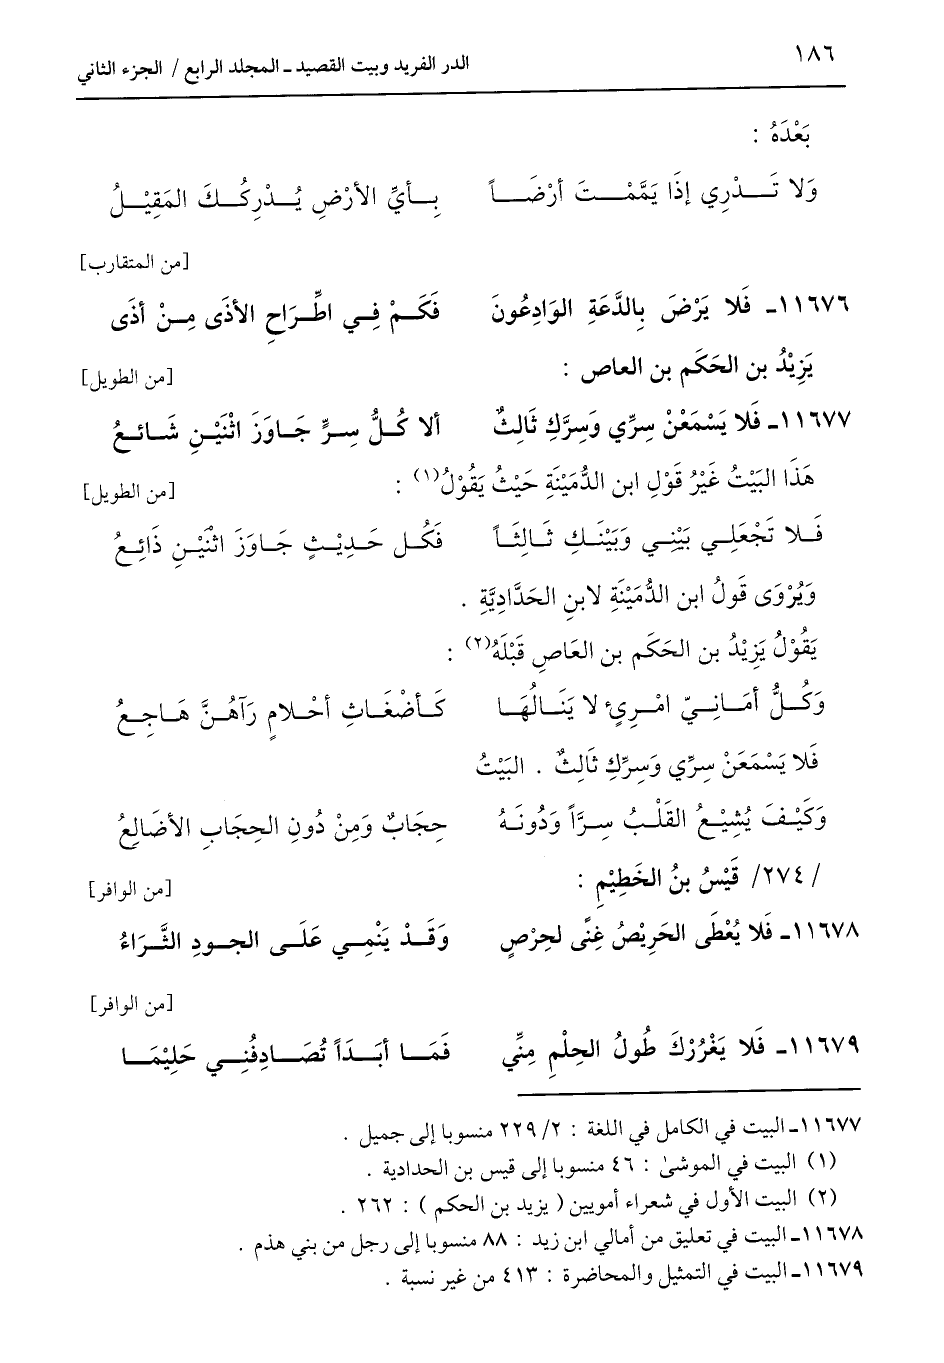 ١٨٦ الدر الفريد وبيت القصيد ـ المجلد الرابع / الجزء الثاني
بَعْدَهُ :
وَلا تَـــدْرِي إذَا يَمَّمْـــتَ أرْضَـــاً بِـأيِّ الأرْضِ يُـدْرِكُـكَ المَقِيْـلُ
[من المتقارب]
١١٦٧٦ـ فَلا يَرْضَ بِالدَّعَةِ الوَادِعُونَ فَكَـمْ فِـي اطِّـرَاحِ الأذَى مِـنْ أذَى
يَزِيْدُ بن الحَكَم بن العاص : [من الطويل]
١١٦٧٧ـ فَلا يَسْمَعَنْ سِرِّي وَسِرَّكِ ثَالِثٌ ألا كُـلُّ سِـرٍّ جَـاوَزَ اثْنَيْـنِ شَـائـعُ
هَذَا البَيْتُ غَيْرُ قَوْلِ ابن الدُّمَيْنَةِ حَيْثُ يَقُوْلُ(١) : [من الطويل]
فَـلا تَجْعَلِـي بَيْنِـي وَبَيْنَـكِ ثَـالِثَـاً فَكُـل حَـدِيْـثٍ جَـاوَزَ اثْنَيْـنِ ذَائِـعُ
وَيُرْوَى قَولُ ابن الدُّمَيْنَةِ لابنِ الحَدَّادِيَّةِ .
يَقُوْلُ يَزِيْدُ بن الحَكَم بن العَاصِ قَبْلَهُ(٢) :
وَكُـلُّ أمَـانِـيّ امْـرِئٍ لا يَنَـالُهَـا كَـأضْغَـاثِ أحْـلامٍ رَآهُـنَّ هَـاجِـعُ
فَلا يَسْمَعَنْ سِرِّي وَسِرِّكِ ثَالِثٌ . البَيْتُ
وَكَيْـفَ يُشِيْـعُ القَلْـبُ سِـرَّاً وَدُونَـهُ حِجَابٌ وَمِنْ دُونِ الحِجَابِ الأضَالِعُ
/ ٢٧٤/ قَيْسُ بنُ الخَطِيْمِ : [من الوافر]
١١٦٧٨ـ فَلا يُعْطَى الحَرِيْصُ غِنًى لحِرْصٍ وَقَـدْ يَنْمِـي عَلَـى الجـودِ الثَّـرَاءُ
[من الوافر]
١١٦٧٩ـ فَلا يَغْرُرْكَ طُولُ الحِلْمِ مِنِّي فَمَـا أبَـدَاً تُصَـادِفُنِـي حَلِيْمَـا
١١٦٧٧ـ البيت في الكامل في اللغة : ٢/ ٢٢٩ منسوبا إلى جميل .
(١) البيت في الموشىٰ : ٤٦ منسوبا إلى قيس بن الحدادية .
(٢) البيت الأول في شعراء أمويين ( يزيد بن الحكم ) : ٢٦٢ .
١١٦٧٨ـ البيت في تعليق من أمالي ابن زيد : ٨٨ منسوبا إلى رجل من بني هذم .
١١٦٧٩ـ البيت في التمثيل والمحاضرة : ٤١٣ من غير نسبة .